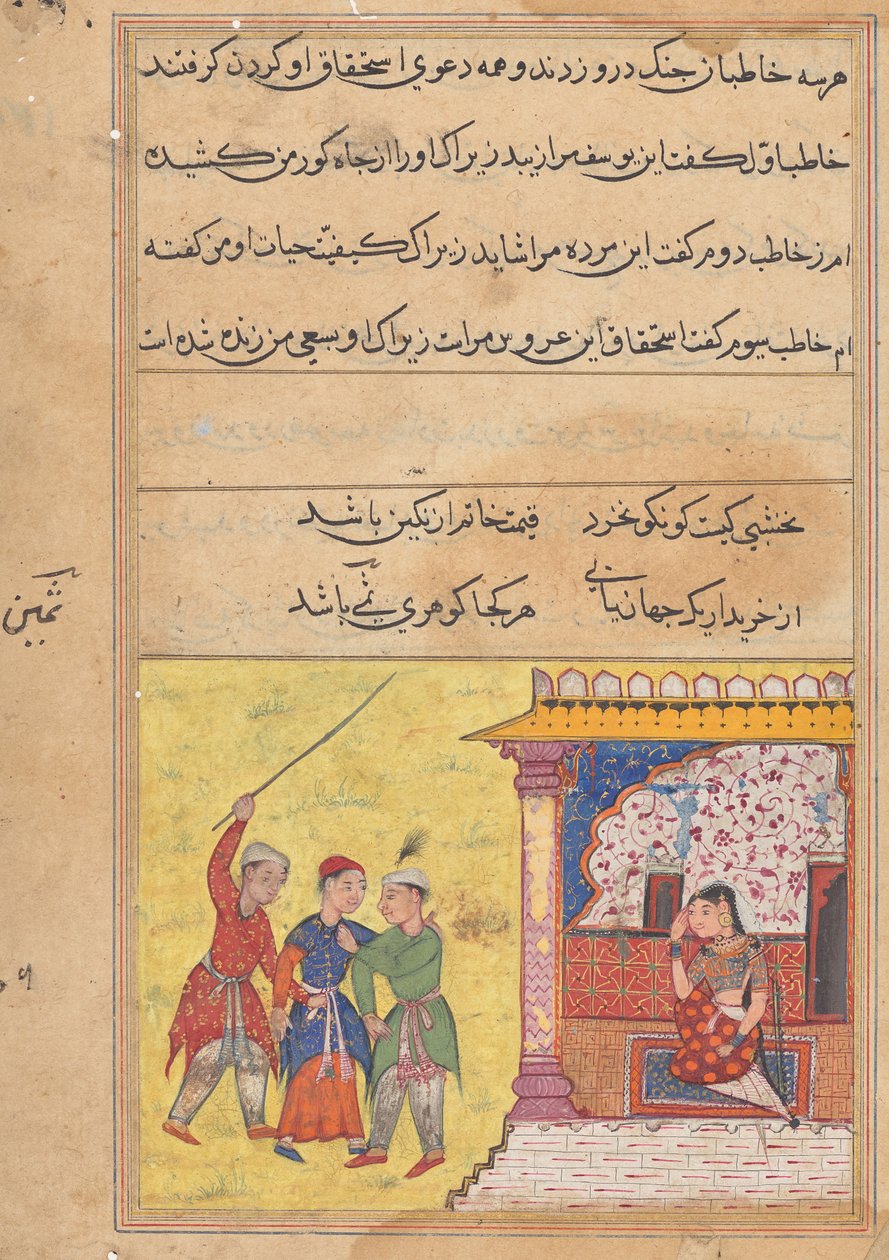 هر سه خاطبان جنک در و زدند و همه دعوی استحقاق او کردن کرفتند
خاطب اوّل کفت این یوسف مرا زیبد زیراک او را از جاه کور من کشیده
ام ز خاطب دوم کفت این مرده مرا شاید زیراک کیفیّت حیات او من کفته
ام خاطب سیوم کفت استحقاق این عروس مراست زیراک او بسعی من زنده شده است
نخشبی کیست کو نکو نخرد قیمت خاتم از نکین باشد
از خریدار یک جهان یابی هر کجا کوهری ثمین باشد
ثمین